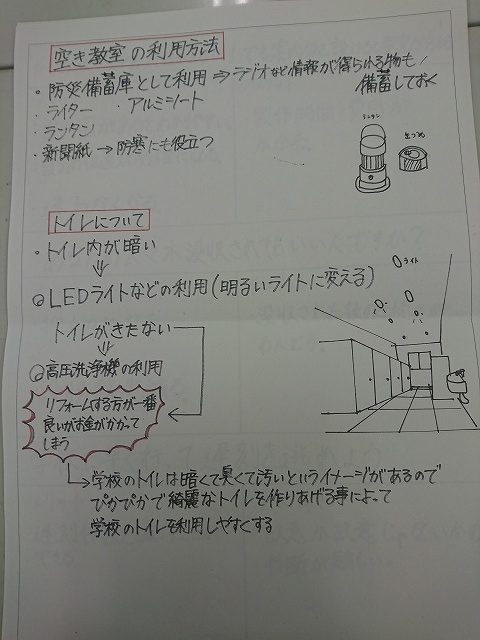 空き教室の利用方法
・防災備蓄庫として利用⇒ラジオなど情報が得られる物も
備蓄しておく
・ライター ・アルミシート
・ランタン
・新聞紙→防寒にも役立つ
ランタン
缶づめ
トイレについて
・トイレ内が暗い
⇓
LEDライトなどの利用(明るいライトに変える)
ライト
トイレがきたない
⇓
高圧洗浄機の利用
リフォームする方が一番
良いがお金がかかって
しまう
→学校のトイレは暗くて臭くて汚いというイメージがあるので
ぴかぴかで綺麗なトイレを作りあげる事によって
学校のトイレを利用しやすくする